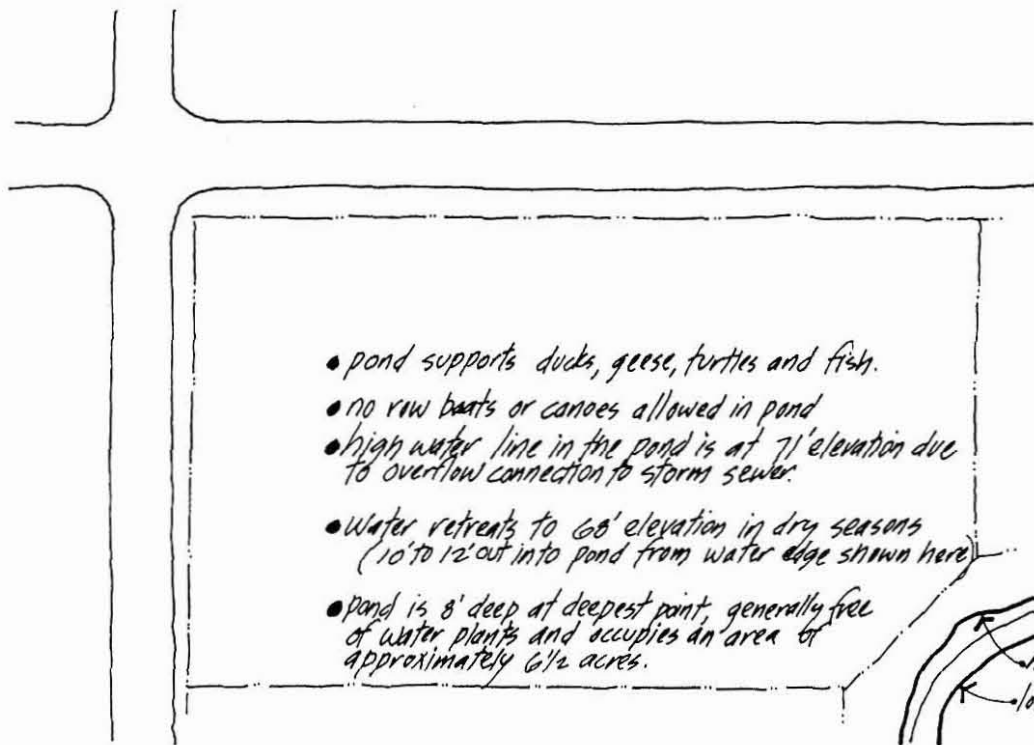 • pond supports ducks, geese, turtles and fish.
• no row boats or canoes allowed in pond
• high water line in the pond is at 71' elevation due
to overflow connection to storm sewer.
• Water retreats to 68' elevation in dry seasons
(10' to 12' out into pond from water edge shown here)
• pond is 8' deep at deepest point, generally free
of water plants and occupies an area of
approximately 6 1/2 acres.